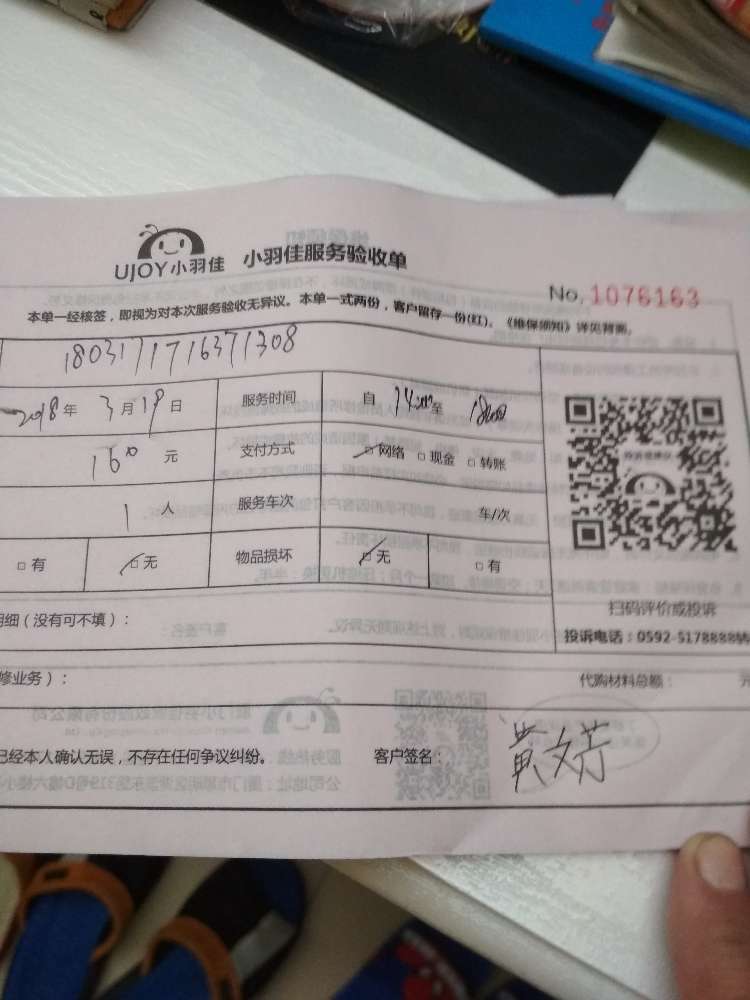 UJOY小羽佳 小羽佳服务验收单
No. 1076163
本单一经核签，即视为对本次服务验收无异议。本单一式两份，客户留存一份(红)。《维保须知》详见背面。
1803171716371308
2018年3月19日 服务时间 自14:00至18:00
160元 支付方式 网络 □现金 □转账
1人 服务车次 车/次
□有 无 物品损坏 无 □有
扫码评价或投诉
明细（没有可不填）：
投诉电话：0592-5178888
修业务）： 代购材料总额： 元
已经本人确认无误，不存在任何争议纠纷。 客户签名： 黄文芳